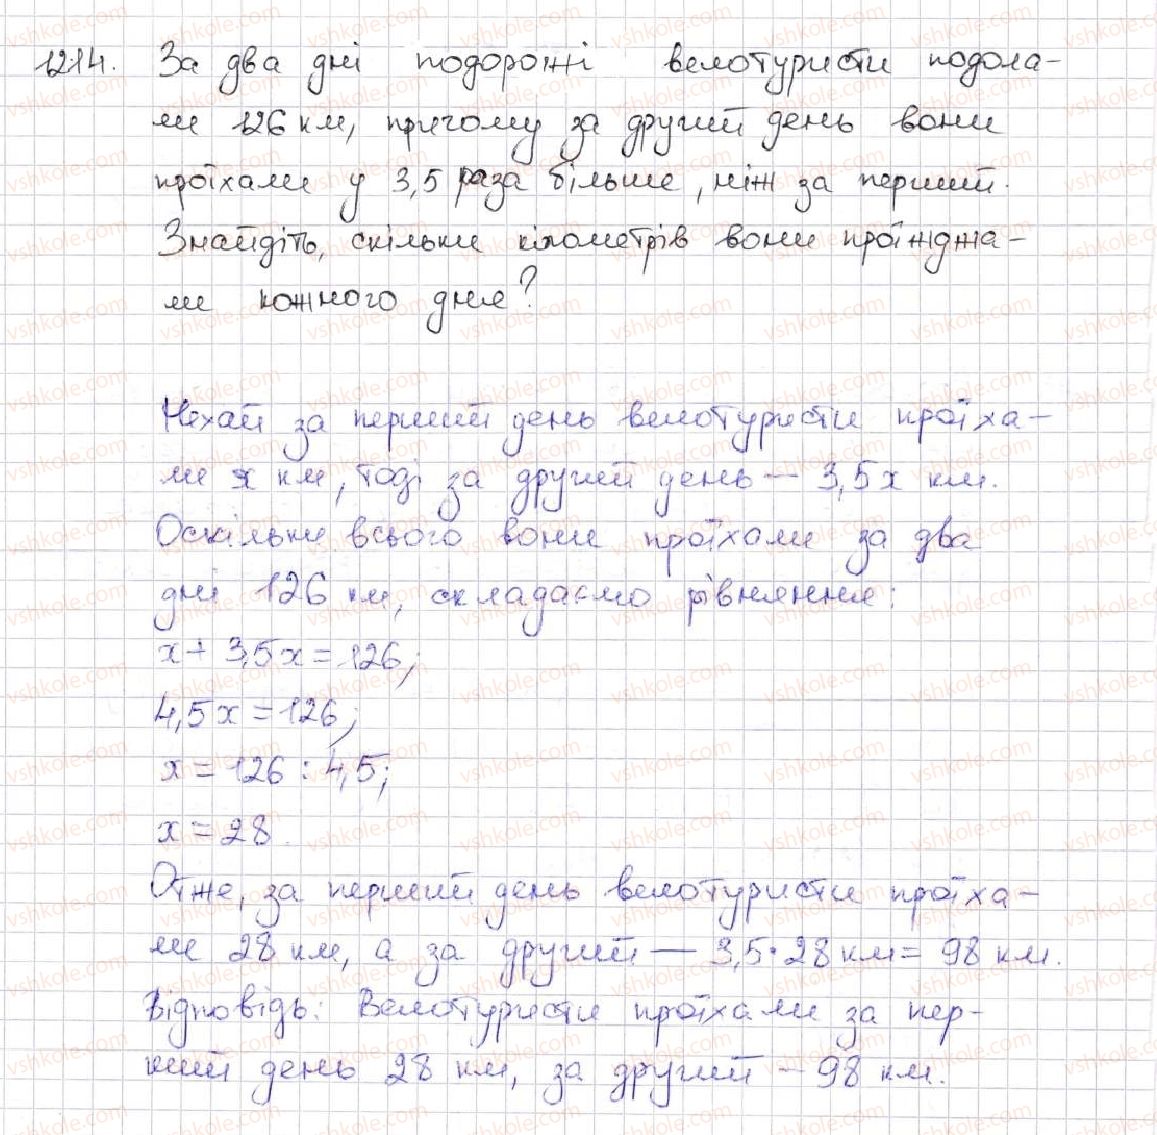 1214. За два дні подорожі велотуристи подола-
ли 126 км, причому за другий день вони
проїхали у 3,5 раза більше, ніж за перший.
Знайдіть, скільки кілометрів вони проїжджа-
ли кожного дня?
Нехай за перший день велотуристи проїха-
ли x км, тоді за другий день — 3,5x км.
Оскільки всього вони проїхали за два
дні 126 км, складаємо рівняння:
x + 3,5x = 126;
4,5x = 126;
x = 126 : 4,5;
x = 28.
Отже, за перший день велотуристи проїха-
ли 28 км, а за другий — 3,5 · 28 км = 98 км.
Відповідь: Велотуристи проїхали за пер-
ший день 28 км, за другий – 98 км.